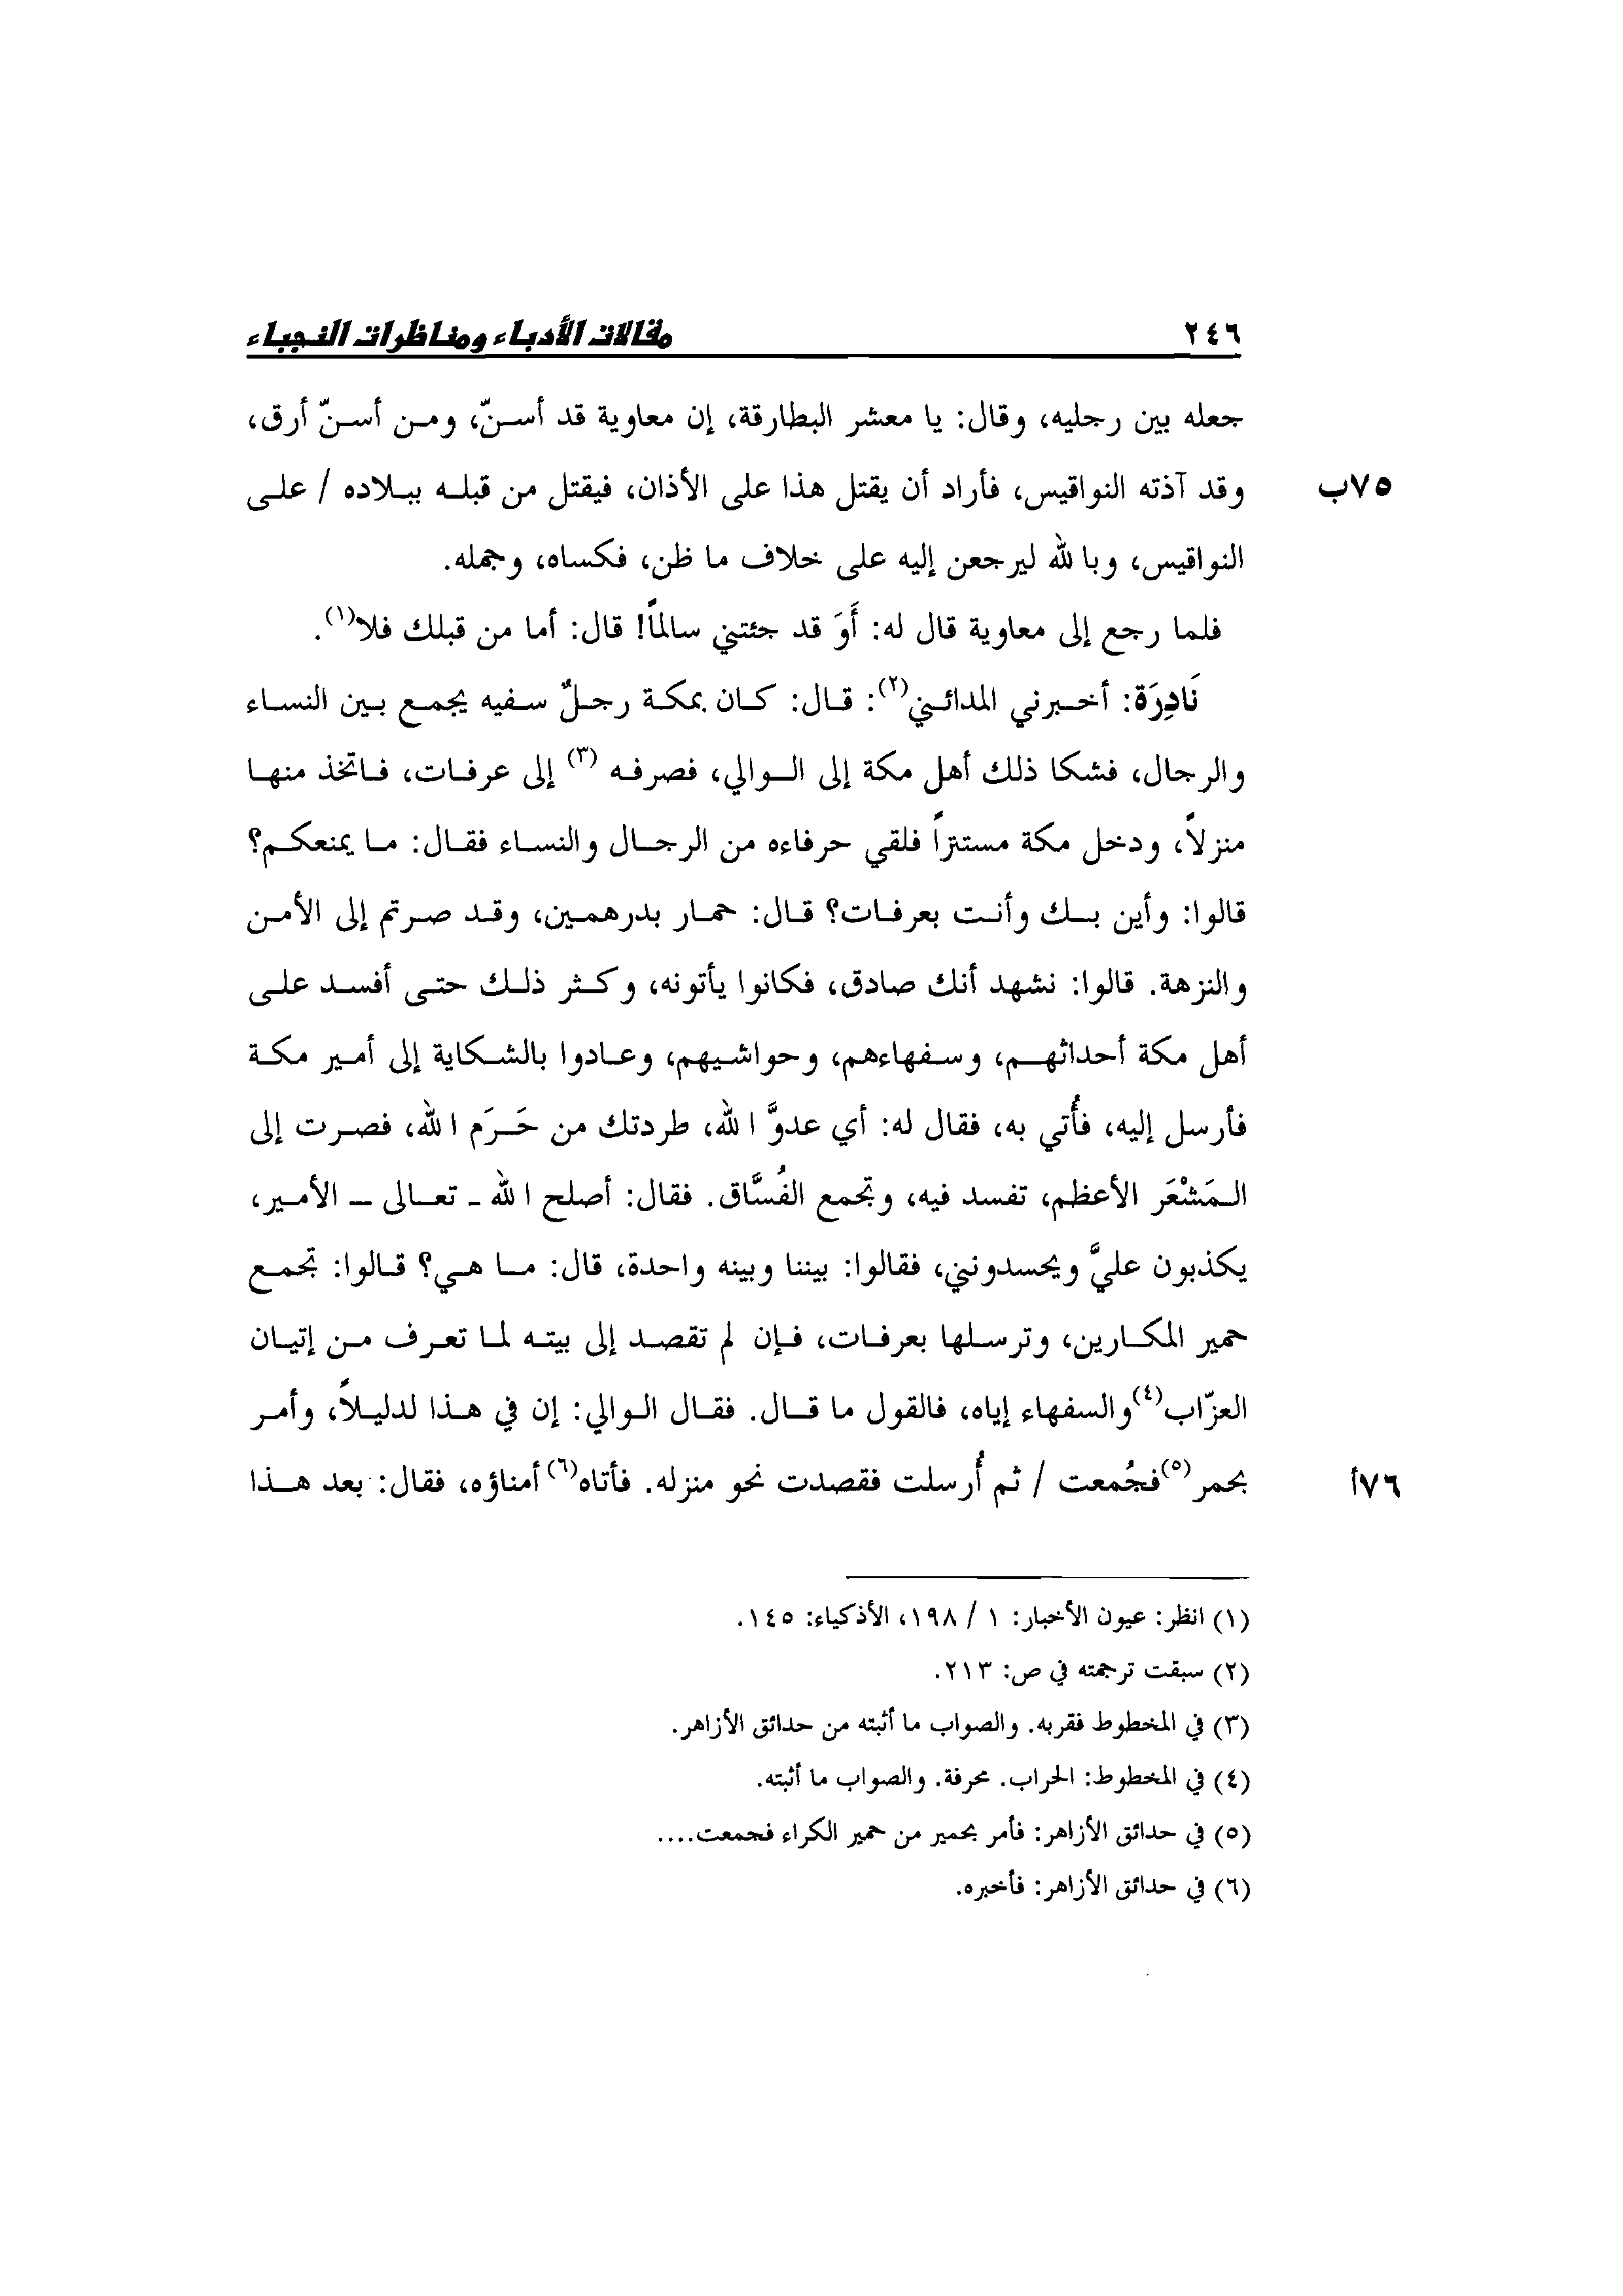 ٢٤٦ مقالات الأدباء ومناظرات النجباء
جعله بين رجليه، وقال: يا معشر البطارقة، إن معاوية قد أسـنّ، ومـن أسـنّ أرق،
وقد آذته النواقيس، فأراد أن يقتل هذا على الأذان، فيقتل من قبلـه ببـلاده / علـى
٧٥ب
النواقيس، وبالله ليرجعن إليه على خلاف ما ظن، فكساه، وحمله.
فلما رجع إلى معاوية قال له: أَوَ قد جئتني سالماً! قال: أما من قبلك فلا(١).
نَادِرَة: أخـبرني المدائـني(٢): قـال: كـان بمكـة رجـلٌ سـفيه يجمـع بـين النسـاء
والرجال، فشكا ذلك أهل مكة إلى الـوالي، فصرفـه (٣) إلى عرفـات، فـاتخذ منهـا
منزلاً، ودخل مكة مستتراً فلقي حرفاءه من الرجـال والنسـاء فقـال: مـا يمنعكـم؟
قالوا: وأين بـك وأنـت بعرفـات؟ قـال: حمـار بدرهمـين، وقـد صـرتم إلى الأمـن
والنزهة. قالوا: نشهد أنك صادق، فكانوا يأتونه، وكـثر ذلـك حتـى أفسـد علـى
أهل مكة أحداثهـم، وسـفهاءهم، وحواشـيهم، وعـادوا بالشـكاية إلى أمـير مكـة
فأرسل إليه، فأُتي به، فقال له: أي عدوَّ الله، طردتك من حَـرَم الله، فصـرت إلى
الـمَشْعَر الأعظم، تفسد فيه، وتجمع الفُسَّاق. فقال: أصلح الله ـ تعـالى ـ الأمـير،
يكذبون عليَّ ويحسدونني، فقالوا: بيننا وبينه واحدة، قال: مـا هـي؟ قـالوا: تجمـع
حمير المكـارين، وترسـلها بعرفـات، فـإن لم تقصـد إلى بيتـه لمـا تعـرف مـن إتيـان
العزّاب(٤) والسفهاء إياه، فالقول ما قـال. فقـال الـوالي: إن في هـذا لدليـلاً، وأمـر
بحمر(٥) فجُمعت / ثم أُرسلت فقصدت نحو منزله. فأتاه(٦) أمناؤه، فقال: بعد هـذا
٧٦أ
(١) انظر: عيون الأخبار: ١ / ١٩٨، الأذكياء: ١٤٥.
(٢) سبقت ترجمته في ص: ٢١٣.
(٣) في المخطوط فقربه. والصواب ما أثبته من حدائق الأزاهر.
(٤) في المخطوط: الحراب. محرفة. والصواب ما أثبته.
(٥) في حدائق الأزاهر: فأمر بحمير من حمير الكراء فجمعت....
(٦) في حدائق الأزاهر: فأخبره.